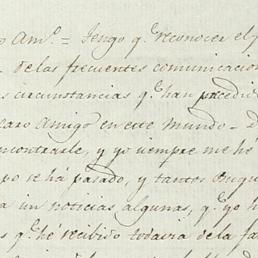 Amº = Tengo q.e reconocer el p
de las frecuentes comunicacion
s circunstancias q.e han precedid
caro Amigo en este mundo - D
encontrarle, y yo siempre me hé
po se ha pasado, y tantos Buqu
a un noticias algunas, q.e yo h
s q.e hé recibido todavia de la fa